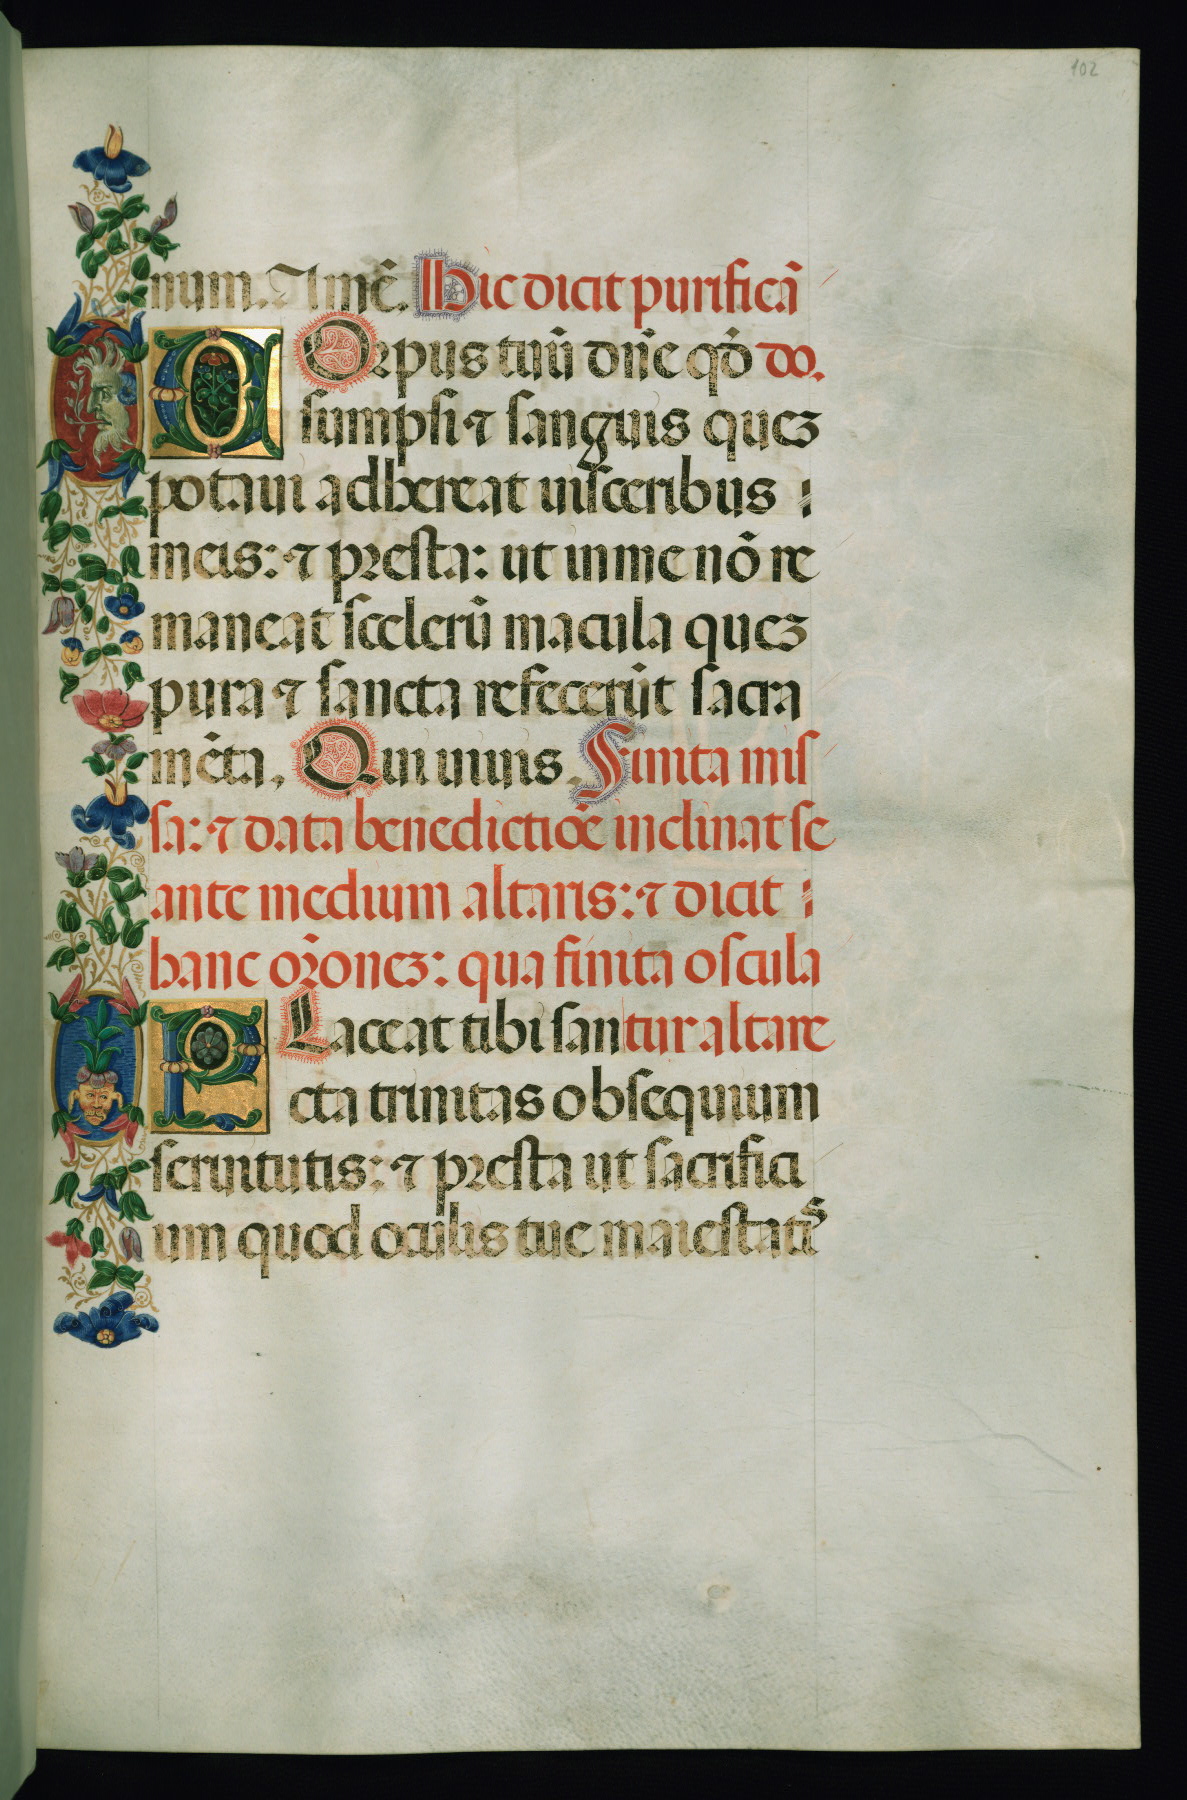 102
num. Amē. Hic dicit purificā
COrpus tuū dn̄e qd̄ do.
sumpsi ⁊ sanguis queꝫ
potaui adhereat uisceribus
meis: ⁊ presta: ut in me nō re
maneat scelerū macula queꝫ
pura ⁊ sancta refecerūt sacra
mēta. Qui uiuis. Finita mis
sa: ⁊ data benedictiōe inclinat se
ante medium altaris: ⁊ dicit
hanc or̄oneꝫ: qua finita oscula
PLaceat tibi san tur altare
cta trinitas obsequium
seruitutis: ⁊ presta ut sacrifici
um quod oculis tue maiestatis